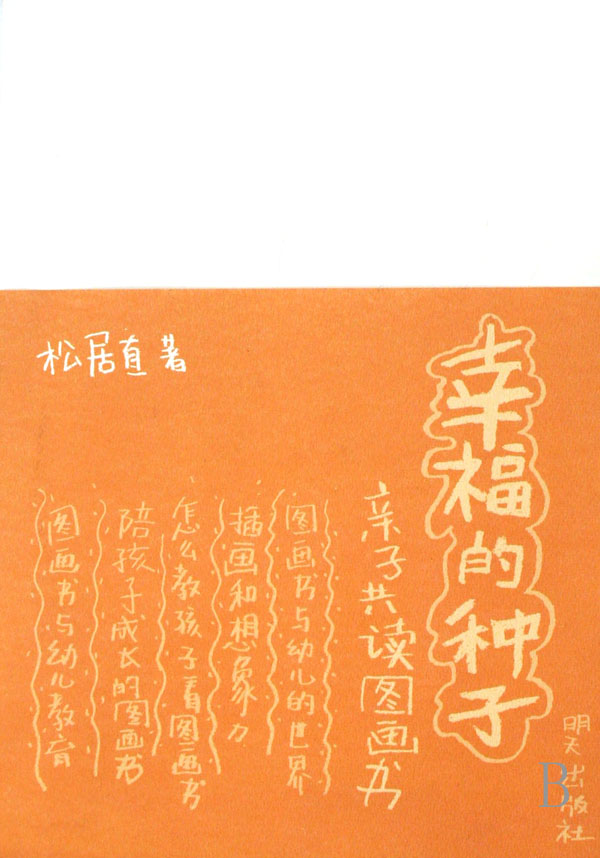 幸福的种子
亲子共读图画书
图画书与幼儿的世界
插画和想象力
怎么教孩子看图画书
陪孩子成长的图画书
图画书与幼儿教育
松居直 著
明天出版社
B